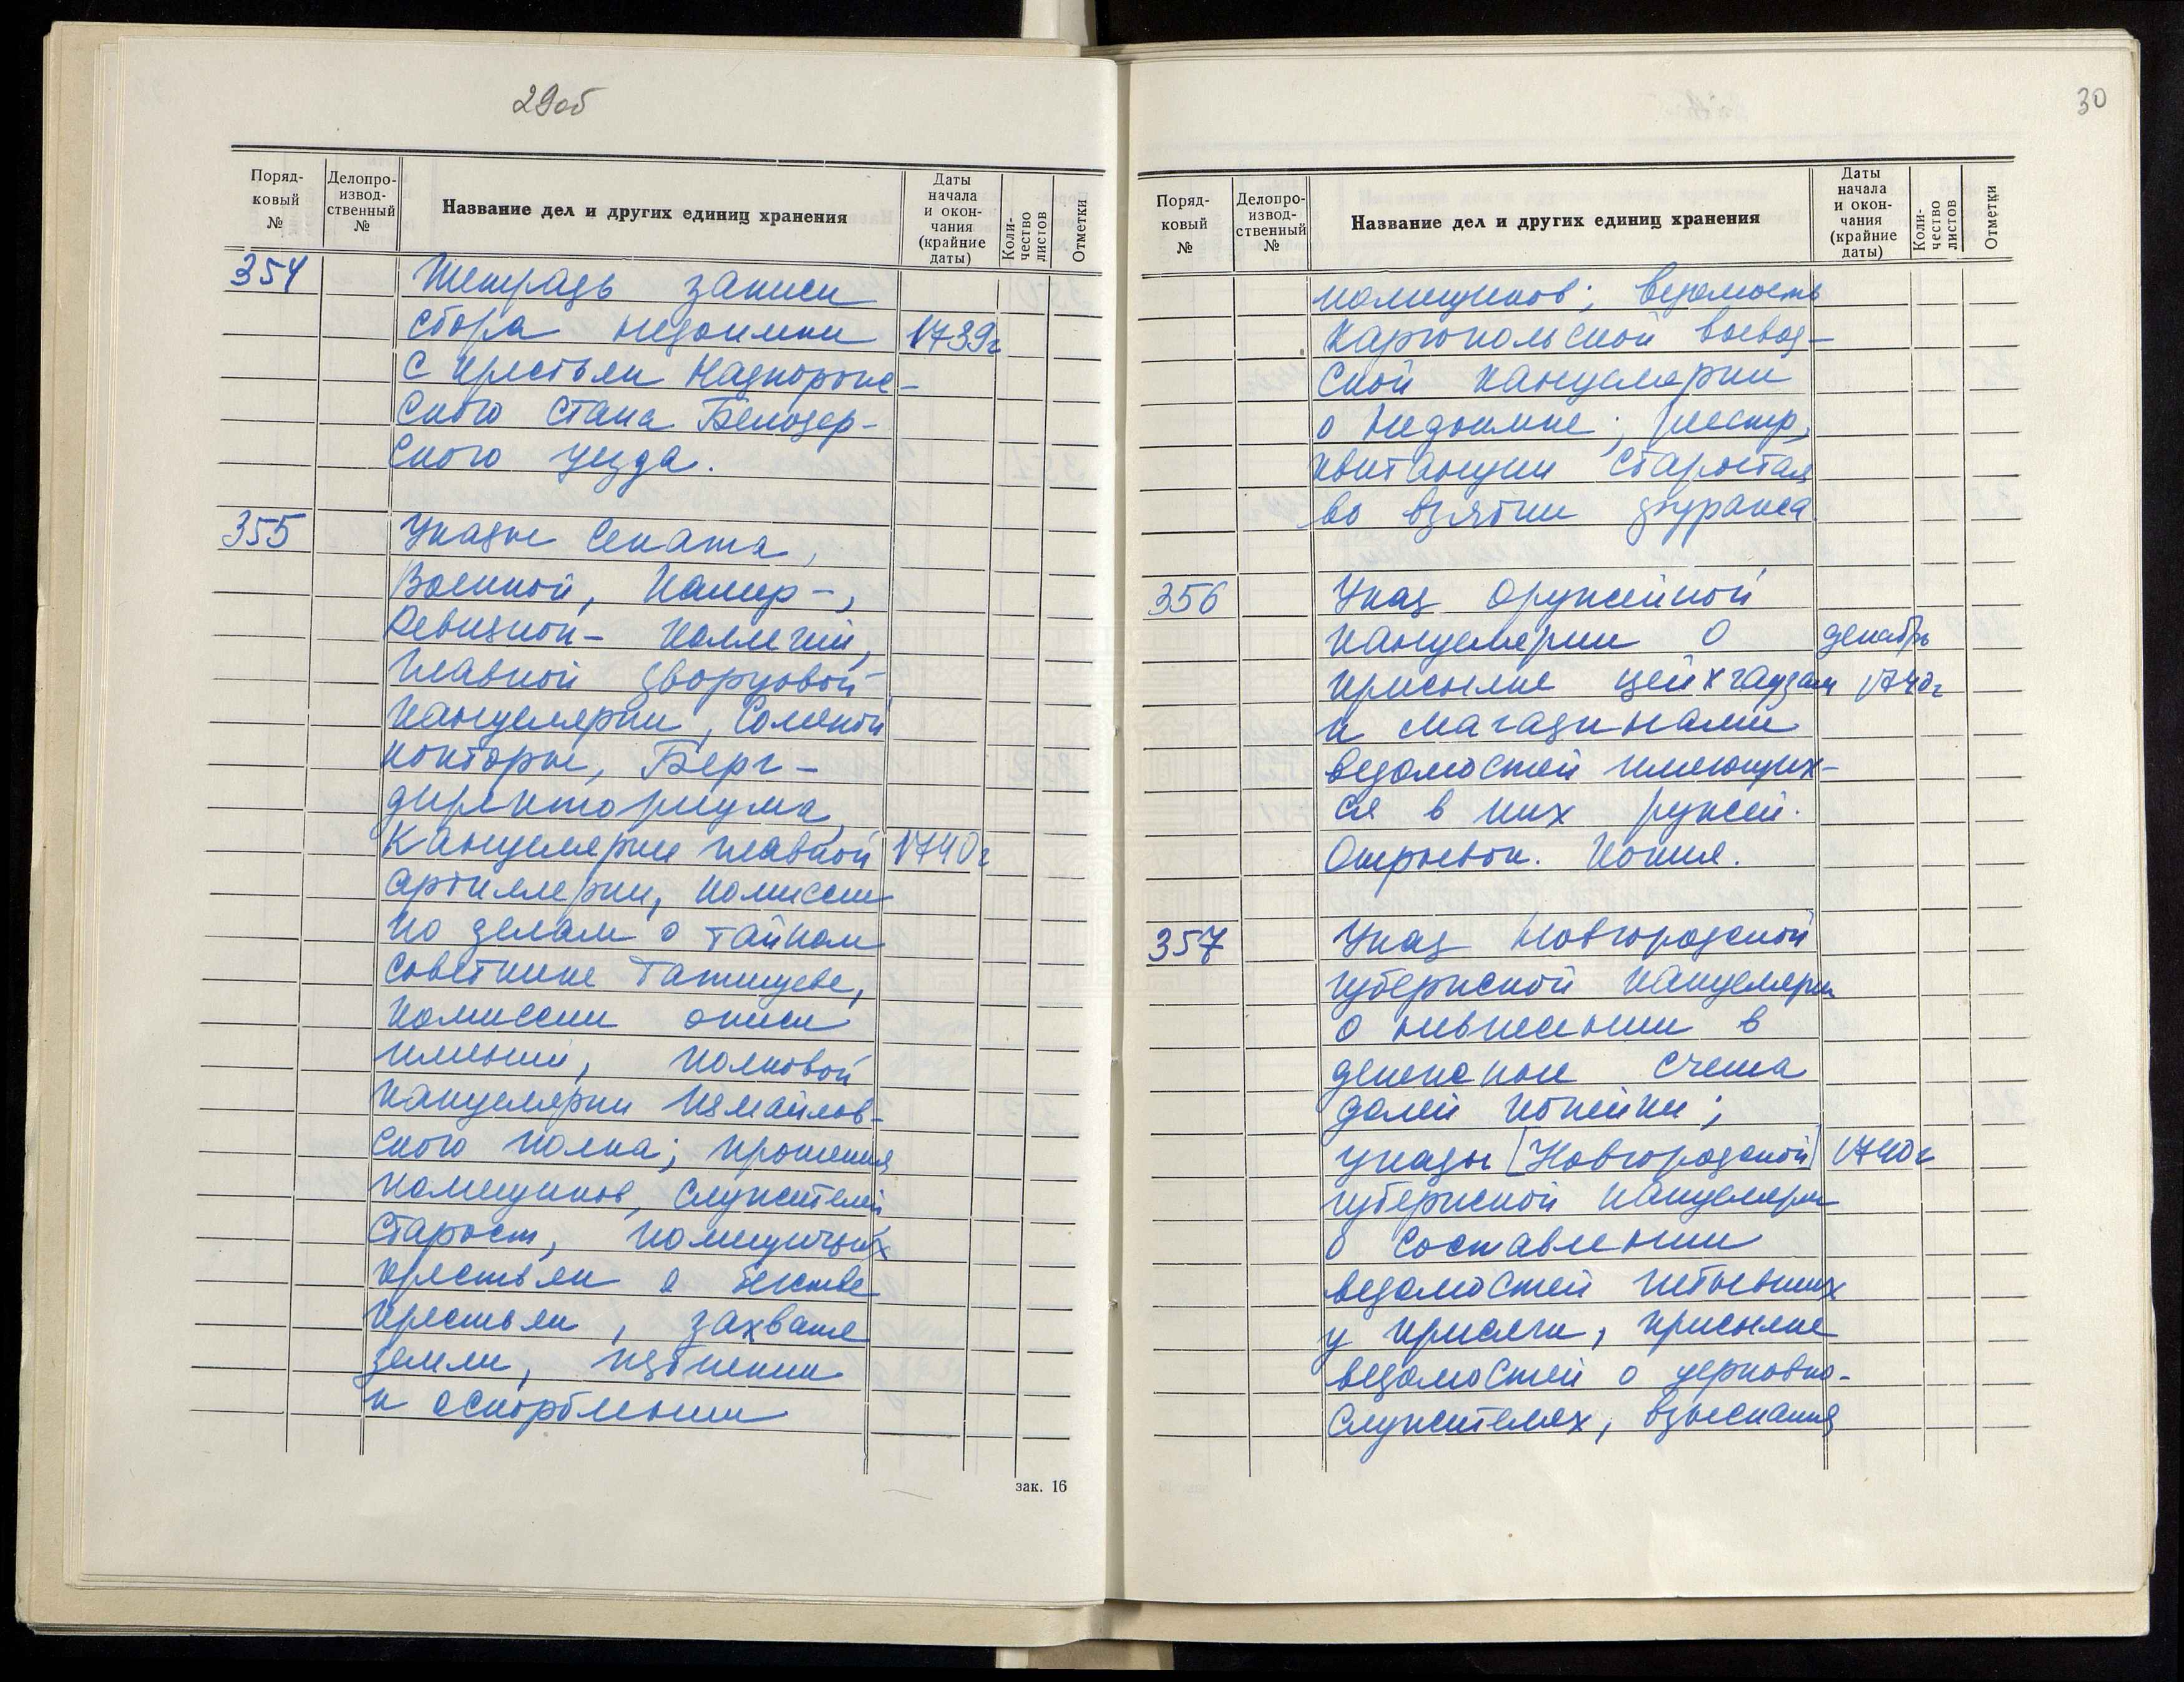 29об
Поряд-
ковый
№
Делопро-
извод-
ственный
№
Название дел и других единиц хранения
Даты
начала
и окон-
чания
(крайние
даты)
Коли-
чество
листов
Отметки
354
Тетрадь записи
сбора недоимки 1739г
с крестьян Надпорож-
ского стана Белозер-
ского уезда.
355
Указы Сената,
Военной, Камер-,
Ревизион- коллегий,
главной дворцовой
канцелярии, Соляной
конторы, Берг-
директориума,
Канцелярии главной 1740г
артиллерии, комиссии
по делам о тайном
советнике Татищеве,
комиссии описи
имений, полковой
канцелярии Измайлов-
ского полка; прошения
помещиков, служителей
старост, помещичьих
крестьян о бегстве
крестьян, захвате
земли, избиении
и оскорблении
зак. 16
30
Поряд-
ковый
№
Делопро-
извод-
ственный
№
Название дел и других единиц хранения
Даты
начала
и окон-
чания
(крайние
даты)
Коли-
чество
листов
Отметки
помещиков; ведомость
Каргопольской воевод-
ской канцелярии
о недоимке; реестр,
квитанции старостам
во взятии фуража
356
Указ Оружейной
канцелярии о декабрь
присылке цейхгаузам 1740г
и магазинами
ведомостей имеющих-
ся в них ружей.
Отрывок. Копия.
357
Указ Новгородской
губернской канцелярии
о невписании в
денежные счета
долей копейки;
указы [Новгородской] 1740г
губернской канцелярии
о составлении
ведомостей небывших
у присяги, присылке
ведомостей о церковно-
служителях, взыскания